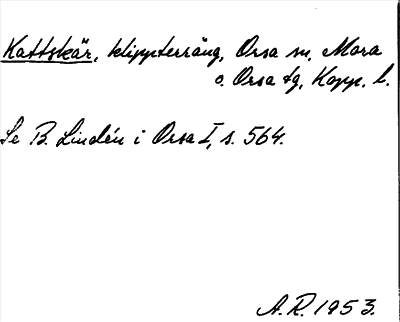 Kattskär, klippterräng, Orsa sn, Mora
o. Orsa tg, Kopp. l.
Se B. Lindén i Orsa I, s. 564.
A.R. 1953.